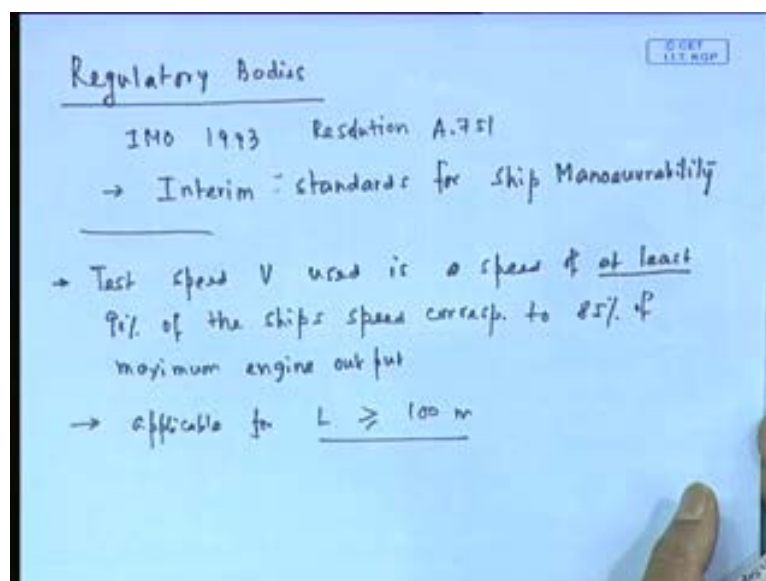 © CET
I.I.T. KGP
Regulatory Bodies
IMO 1993 Resolution A.751
→ Interim standards for ship Manoeuvrability
→ Test speed V used is a speed of at least
90% of the ships speed corresp. to 85% of
maximum engine output
→ applicable for L ≥ 100 m